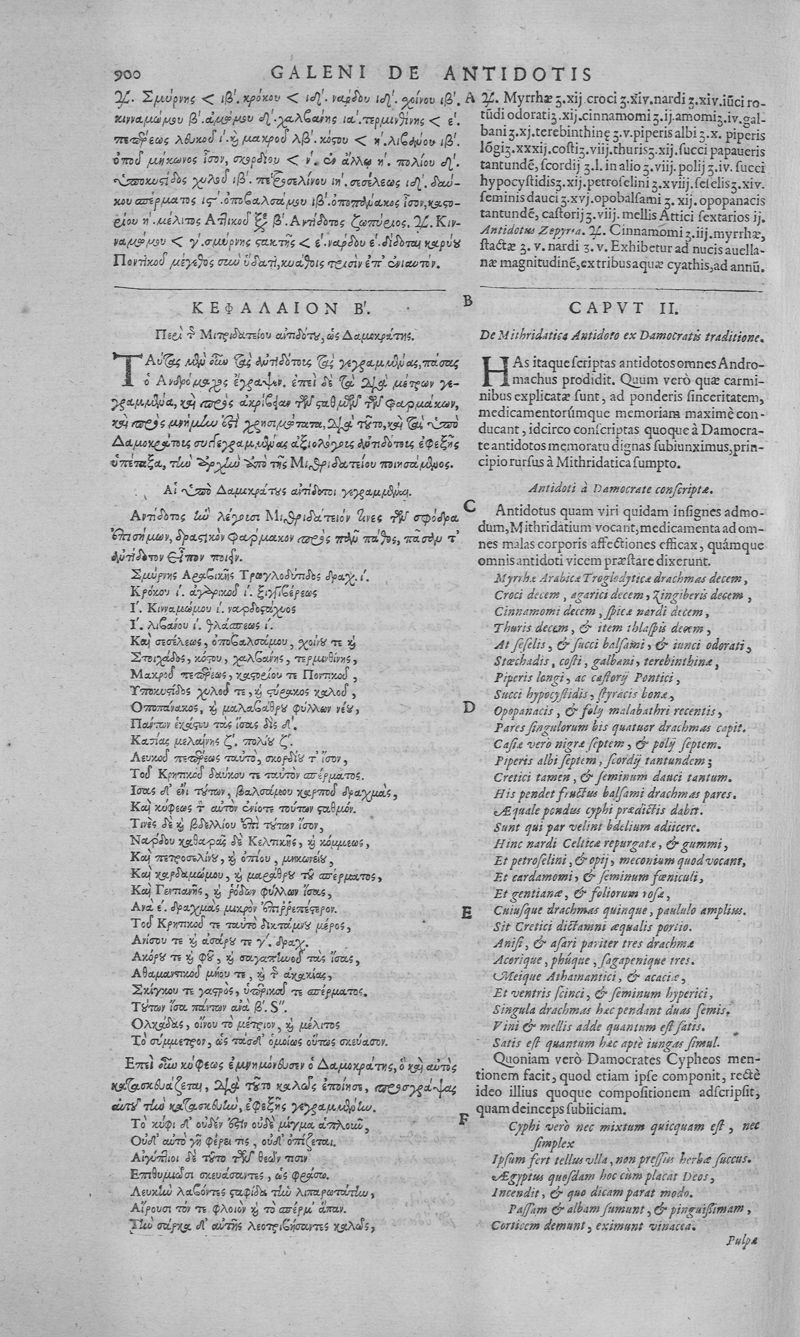 900 GALENI DE ANTIDOTIS
Σμύρνης < ιβʹ. κρόκου < ιδʹ. νάρδου ιδʹ. χοίνου ιβʹ.
κινναμώμου ιβʹ. ἀμώμου δʹ. χαλβάνης ιαʹ. τερμινθίνης < εʹ.
πεπέρεως λευκοῦ ιʹ. καὶ μακροῦ λβʹ. κόστου < ηʹ. λιβάνου ιβʹ.
ὀποῦ μήκωνος ἴσον, σκορδίου < νʹ. ἐν ἄλλῳ ηʹ. πολίου δʹ.
ὑποκυστίδος χυλοῦ ιβʹ. πετροσελίνου ιηʹ. σεσέλεως ιδʹ. δαύκου
σπέρματος ιϛʹ. ὀποβαλσάμου ιβʹ. ὀποπάνακος ἴσον, καστορίου
ηʹ. μέλιτος Ἀττικοῦ ξε βʹ. Ἀντίδοτος ζωπύριος. Κινναμώμου
< γʹ. σμύρνης στακτῆς < εʹ. νάρδου εʹ. δίδοται καρύου
Ποντικοῦ μέγεθος σὺν ὕδατι, κυάθοις τρισὶν ἐπ' ἐνιαυτόν.
ΚΕΦΑΛΑΙΟΝ Βʹ.
Περὶ τῆς Μιτριδατείου ἀντιδότου, ὡς Δαμοκράτης.
ΤΑύτας μὲν οὖν τὰς ἀντιδότους τὰς γεγραμμένας, πάσας
ὁ Ἀνδρόμαχος ἔγραψεν. ἐπεὶ δὲ τὰ διὰ μέτρων γεγραμμένα,
καὶ πρὸς ἀκρίβειαν τῶν σταθμῶν τῶν φαρμάκων,
καὶ πρὸς μνήμην ἐστὶ χρησιμώτατα, διὰ τοῦτο, καὶ τὰς ὑπὸ
Δαμοκράτους συγγεγραμμένας ἀξιολόγους ἀντιδότους ἐφεξῆς
ὑπέταξα, τὴν ἀρχὴν ἀπὸ τῆς Μιθριδατείου ποιησάμενος.
Αἱ ὑπὸ Δαμοκράτους ἀντίδοτοι γεγραμμέναι.
Ἀντίδοτος ἣν λέγουσι Μιθριδάτειόν τινες τῶν σφόδρα
ἐπισήμων, δραστικὸν φάρμακον πρὸς πᾶν πάθος, πασῶν τ'
ἀντίδοτον εἶπον ποιεῖν.
Σμύρνης Ἀραβικῆς Τρωγλοδύτιδος δραχ. ιʹ.
Κρόκου ιʹ. ἀγαρικοῦ ιʹ. ζιγγιβέρεως
Ιʹ. Κινναμώμου ιʹ. ναρδοστάχυος
Ιʹ. λιβάνου ιʹ. θλάσπεως ιʹ.
Καὶ σεσέλεως, ὀποβαλσάμου, σχοίνου τε καὶ
Στοιχάδος, κόστου, χαλβάνης, τερμινθίνης,
Μακροῦ πεπέρεως, καστορίου τε Ποντικοῦ,
Ὑποκυστίδος χυλοῦ τε, καὶ στύρακος καλοῦ,
Ὀποπάνακος, καὶ μαλαβάθρου φύλλων νέου,
Πάντων ἑκάστου τὰς ἴσας δὶς δʹ.
Κασίας μελαίνης ζʹ. πολίου ζʹ.
Λευκοῦ πεπέρεως ταὐτό, σκορδίου τ' ἴσον,
Τοῦ Κρητικοῦ δαύκου τε ταὐτὸν σπέρματος.
Ἴσας δ' ἔνι τούτων, βαλσάμου καρποῦ δραχμάς,
Καὶ κύφεως τ' αὐτὸν ἐνίοτε τούτων σταθμόν.
Τινὲς δὲ καὶ βδελλίου ἐπὶ τούτων ἴσον,
Νάρδου καθαρᾶς δὲ Κελτικῆς, καὶ κόμμεως,
Καὶ πετροσελίνου, καὶ ὀπίου, μηκωνείου,
Καὶ καρδαμώμου, καὶ μαράθρου τοῦ σπέρματος,
Καὶ Γεντιανῆς, καὶ ῥόδων φύλλων ἴσας,
Ἀνὰ εʹ. δραχμὰς μικρὸν ἐπιρρεπέστερον.
Τοῦ Κρητικοῦ τε ταὐτὸ δικτάμνου μέρος,
Ἀνίσου τε καὶ ἀσάρου τε γʹ. δραχ.
Ἀκόρου τε καὶ φοῦ, καὶ σαγαπίνου τὰς ἴσας,
Ἀθαμαντικοῦ μήου τε, καὶ τῆς ἀκακίας,
Σκίγκου τε γαστρός, ὑπερικοῦ τε σπέρματος.
Τούτων ἴσα πάντων ἀνὰ βʹ. Sʹʹ.
Ὁλκάδας, οἴνου τὸ μέτριον, καὶ μέλιτος
Τὸ σύμμετρον, ὡς πᾶσιν ὁμοίως οὕτως σκεύασον.
Ἐπεὶ οὖν κύφεως ἐμνημόνευσεν ὁ Δαμοκράτης, ὃ καὶ αὐτὸς
κατασκευάζεται, διὰ τοῦτο καλῶς ἐποίησε, προσγράψας
αὐτοῦ τὴν κατασκευήν, ἐφεξῆς γεγραμμένην.
Τὸ κύφι δ' οὐδέν ἐστιν οὐδὲ μίγμα ἁπλοῦν,
Οὐδ' αὐτὸ γῆ φέρει τις, οὐδ' ὀπίζεται.
Αἰγύπτιοι δὲ τοῦτο τῶν θεῶν τισιν
Ἐπιθυμιῶσι σκευάσαντες, ὡς φράσω.
Λευκὴν λαβόντες σταφίδα τὴν λιπαρωτάτην,
Αἴρουσι τόν τε φλοιὸν καὶ τὸ σπέρμ' ἅπαν.
Τὴν σάρκα δ' αὐτῆς λεοτριβήσαντες καλῶς,
A
B
C
D
E
F
Myrrhæ ʒ.xij croci ʒ.xiv. nardi ʒ.xiv. iũci rotũdi
odorati ʒ.xij. cinnamomi ʒ.ij. amomi ʒ.iv. galbani
ʒ.xj. terebinthinę ʒ.v. piperis albi ʒ.x. piperis
lõgi ʒ.xxxij. costi ʒ.viij. thuris ʒ.xij. succi papaueris
tantundẽ, scordij ʒ.l. in alio ʒ.viij. polij ʒ.iv. succi
hypocystidis ʒ.xij. petroselini ʒ.xviij. seselis ʒ.xiv.
seminis dauci ʒ.xvj. opobalsami ʒ.xij. opopanacis
tantundẽ, castorij ʒ.viij. mellis Attici sextarios ij.
Antidotus Zopyra. Cinnamomi ʒ.iij. myrrhæ,
stactæ ʒ.v. nardi ʒ.v. Exhibetur ad nucis auellanæ
magnitudinẽ, ex tribus aquæ cyathis, ad annũ.
CAPVT II.
De Mithridatica Antidoto ex Damocratis traditione.
HAs itaque scriptas antidotos omnes Andromachus
prodidit. Quum verò quæ carminibus
explicatæ sunt, ad ponderis sinceritatem,
medicamentorúmque memoriam maximè conducant,
idcirco conscriptas quoque à Damocrate
antidotos memoratu dignas subiunximus, principio
rursus à Mithridatica sumpto.
Antidoti à Damocrate conscriptæ.
Antidotus quam viri quidam insignes admodum,
Mithridatium vocant, medicamenta ad omnes
malas corporis affectiones efficax, quámque
omnis antidoti vicem præstare dixerunt.
Myrrhæ Arabicæ Troglodyticæ drachmas decem,
Croci decem, agarici decem, Zingiberis decem,
Cinnamomi decem, spicæ nardi decem,
Thuris decem, & item thlaspis decem,
At seselis, & succi balsami, & iunci odorati,
Stœchadis, costi, galbani, terebinthinæ,
Piperis longi, ac castorij Pontici,
Succi hypocystidis, styracis bonæ,
Opopanacis, & folij malabathri recentis,
Pares singulorum bis quatuor drachmas capit.
Casiæ verò nigræ septem, & polij septem.
Piperis albi septem, scordij tantundem;
Cretici tamen, & seminum dauci tantum.
His pendet fructus balsami drachmas pares.
Æquale pondus cyphi prædictis dabit.
Sunt qui par velint bdelium adiicere.
Hinc nardi Celticæ repurgatæ, & gummi,
Et petroselini, & opij, meconium quod vocant,
Et cardamomi, & seminum fœniculi,
Et gentianæ, & foliorum rosæ,
Cuiusque drachmas quinque, paululo amplius.
Sit Cretici dictamni æqualis portio.
Anisi, & asari pariter tres drachmæ
Acorique, phúque, sagapenique tres.
Meique Athamantici, & acaciæ,
Et ventris scinci, & seminum hyperici,
Singula drachmas hæc pendant duas semis.
Vini & mellis adde quantum est satis.
Satis est quantum hæc aptè iungas simul.
Quoniam verò Damocrates Cypheos mentionem
facit, quod etiam ipse componit, rectè
ideo illius quoque compositionem adscripsit,
quam deinceps subiiciam.
Cyphi verò nec mixtum quicquam est, nec
simplex
Ipsum fert tellus vlla, non pressus herbæ succus.
Ægyptus quosdam hoc cum placat Deos,
Incendit, & quo dicam parat modo.
Passam & albam sumunt, & pinguissimam,
Corticem demunt, eximunt vinacea.
Pulpæ